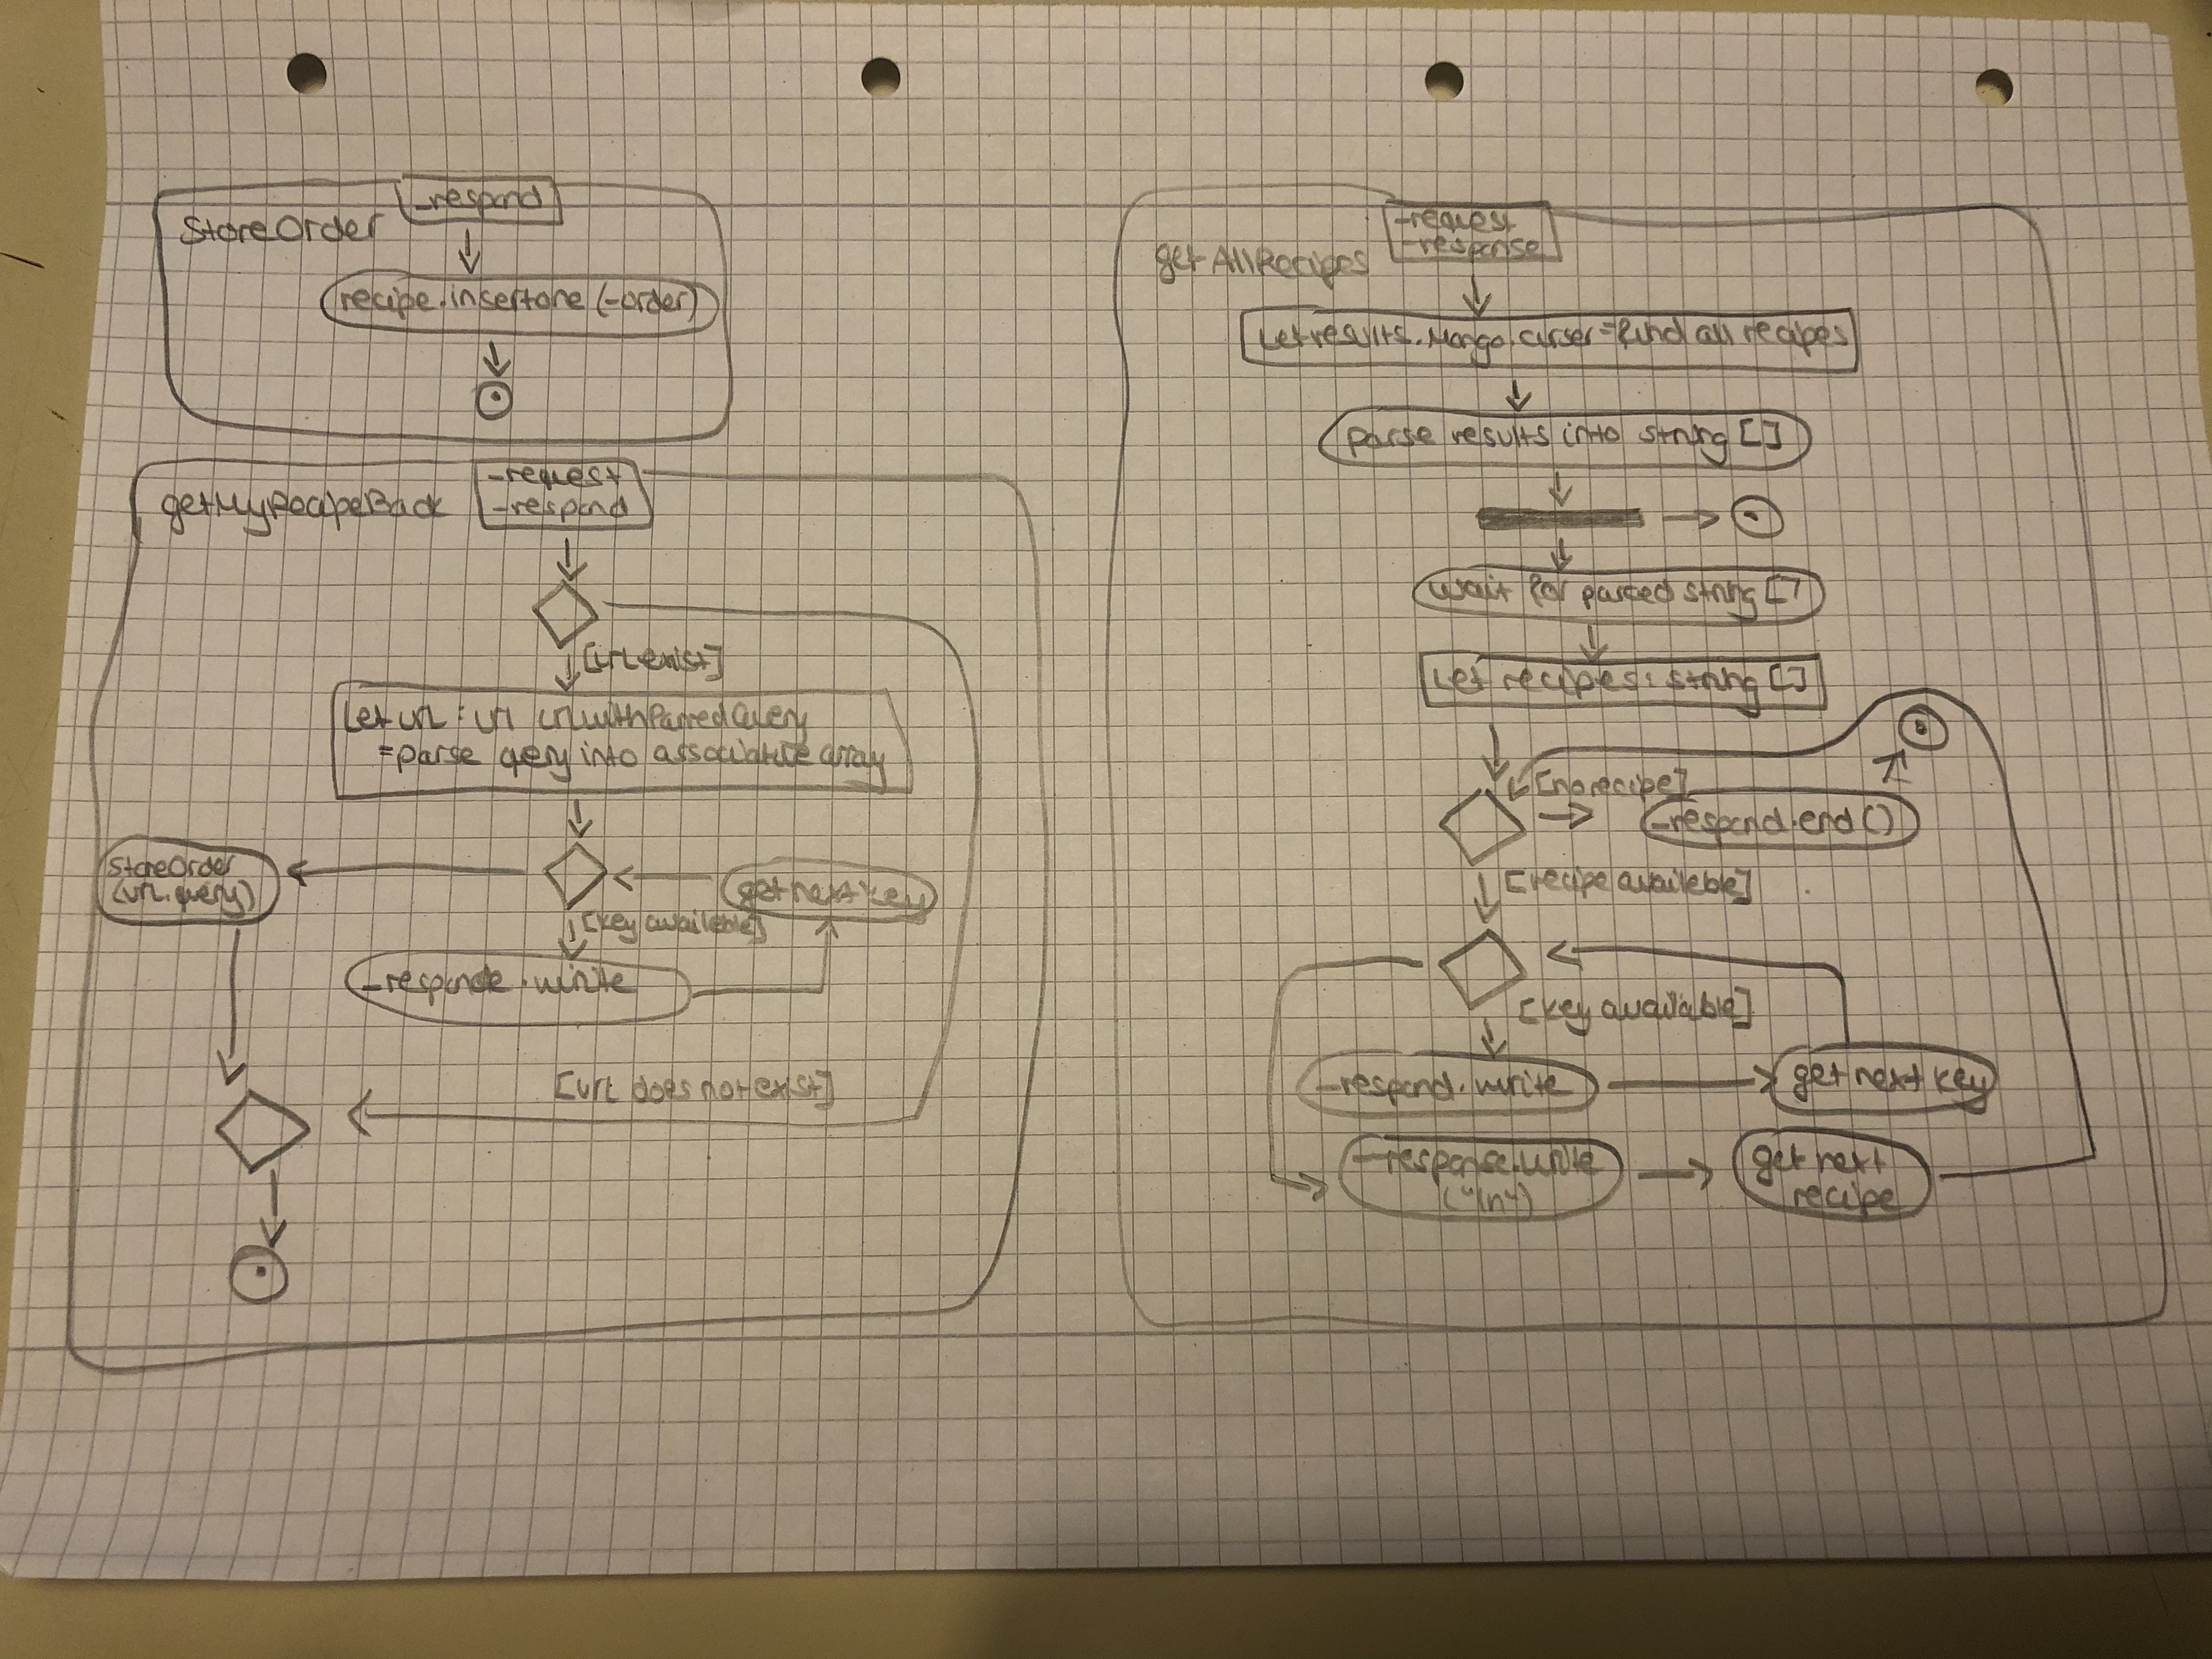 StoreOrder
_respond
recipe.insertone(-order)
getMyRecipeBack
-request
-respond
[url exist]
Let url : url urlwithParsedQuery
=parse query into associative array
StoreOrder
(url.query)
get next key
[key available]
-responde.write
[url does not exist]
getAllRecipes
-request
-response
Let results.Mongo.curser=find all recipes
Parse results into string []
wait for parced string []
Let recipes: string []
[no recipe]
-respond.end()
[recipe available]
[key available]
-respond.write
get next key
-response.write
("\n")
get next
recipe